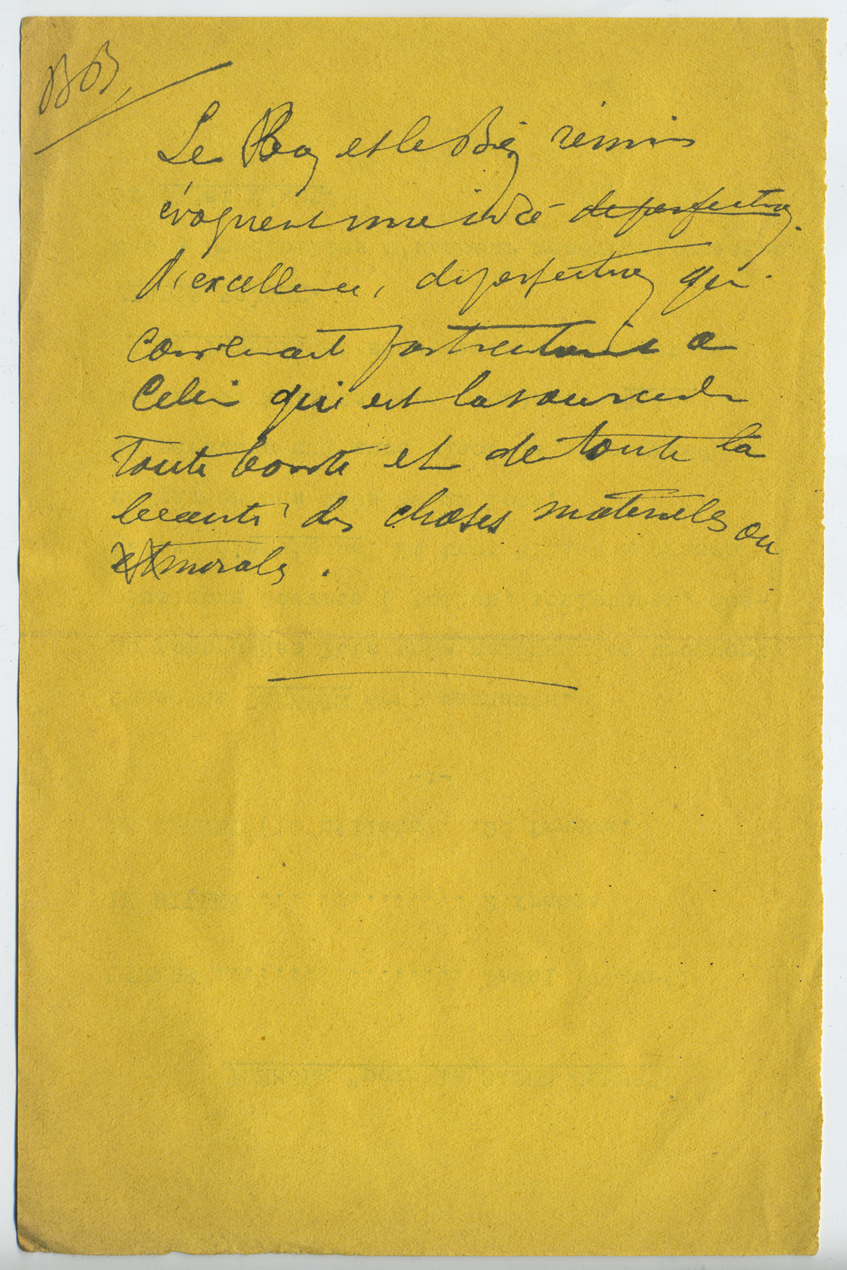 BB,
Le Beau et le Bien réunis
évoquent une idée de perfection.
d'excellence, de perfection qui
convenait parfaitement à
Celui qui est la source de
toute bonté et de toute la
beauté des choses matérielles ou
et morales.